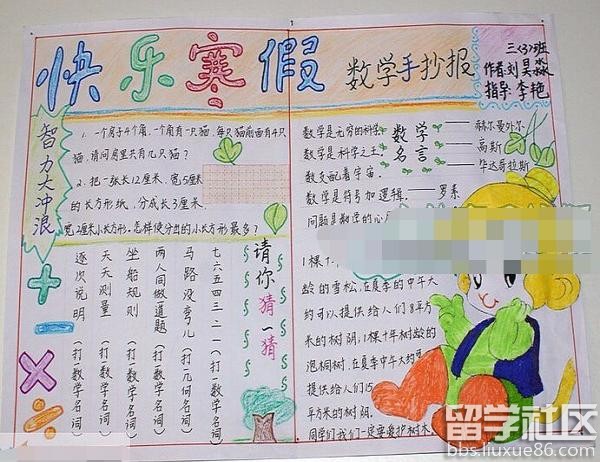 快乐寒假
数学手抄报
三〈3〉班
作者:刘昊淼
指导:李艳
智力大冲浪
1.一个房子4个角,一个角有一只猫,每只猫前面有4只
猫,请问房里共有几只猫?
2.把一张长12厘米,宽5厘米
的长方形纸,分成长3厘米,
宽2厘米小长方形。怎样使分出的小长方形最多?
请你猜一猜
七六五四三二一(打数学名词)
马路没弯儿(打几何名词)
两人同做道题(打数学名词)
坐船规则(打数学名词)
天天测量(打数学名词)
逐次说明(打数学名词)
数学名言
数学是无穷的科学——赫尔曼外尔
数学是科学之王——高斯
数支配着宇宙。——毕达哥拉斯
数学是符号加逻辑。——罗素
问题是数学的心
1棵
龄的雪松,在夏季的中午大
约可以提供给人们8平方
米的树阴,1棵十年树龄的
泡桐树,在夏季中午大约可
提供给人们15
平方米的树阴。
同学们我们一定要爱护树木
留学社区
bbs.liuxue86.com